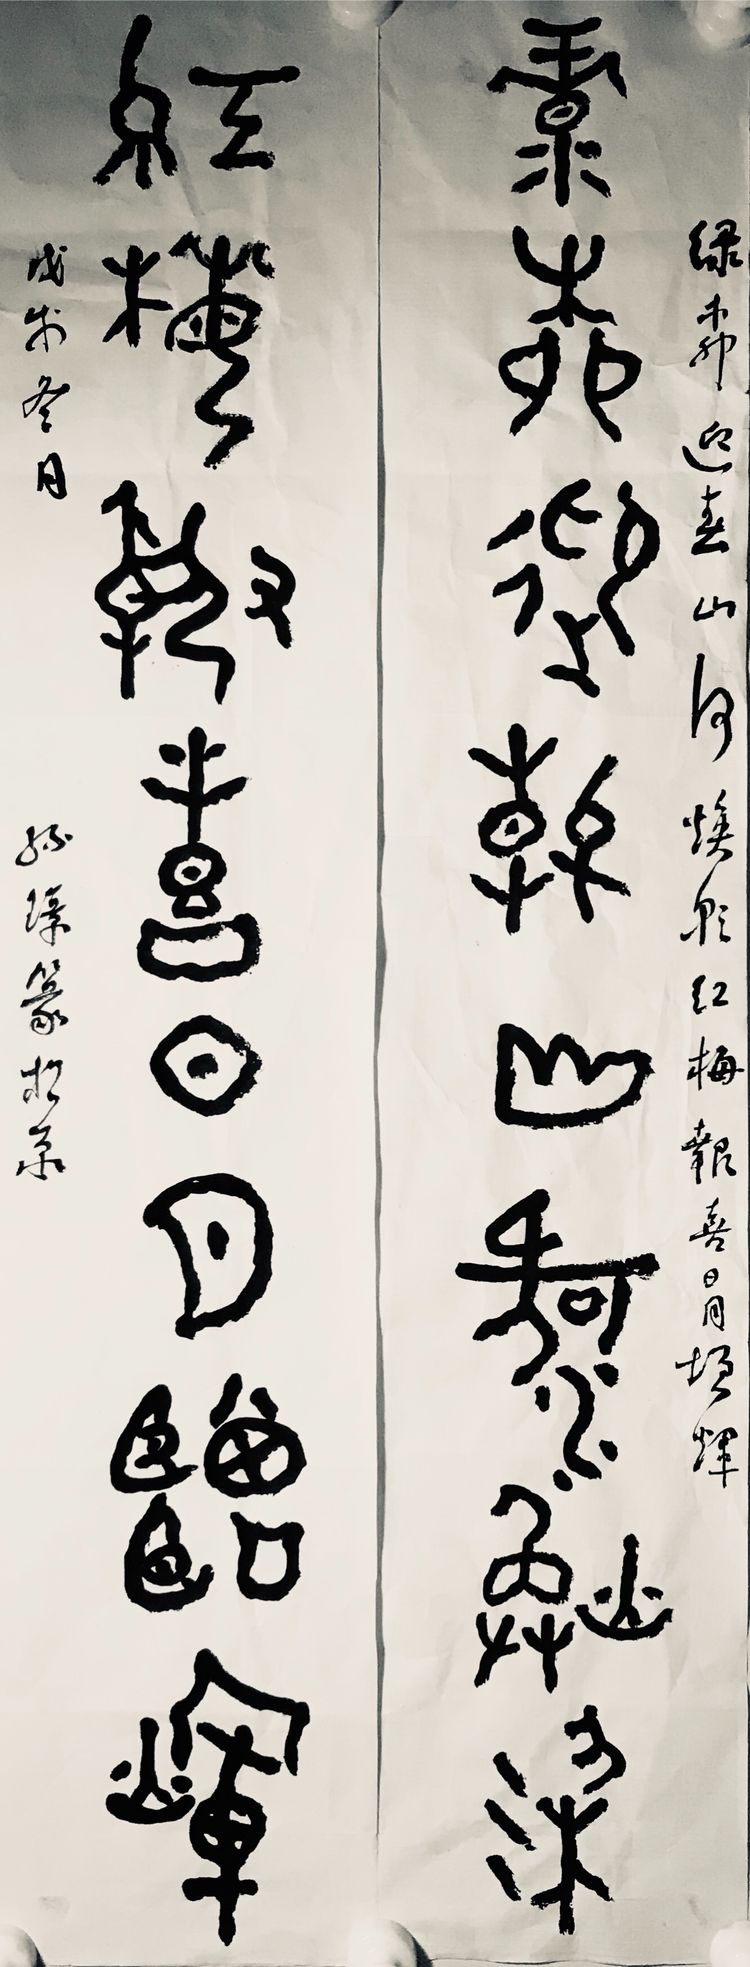 绿柳迎春山河焕彩红梅報喜日月增輝
綠柳迎春山河焕彩
紅梅報喜日月增輝
戊戌冬月
孫璋篆於京